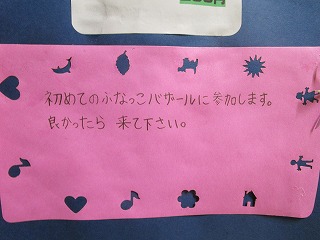 初めてのふなっこバザールに参加します。
良かったら 来て下さい。